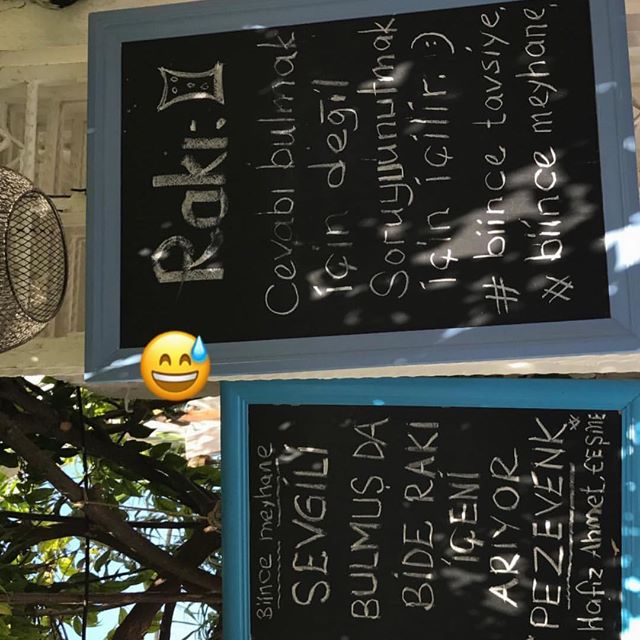 Rakı:
Cevabı bulmak
için değil
Soruyu unutmak
için içilir. :)
# biince tavsiye,
* biince meyhane,
Biince meyhane
SEVGİLİ
BULMUŞ DA
BİDE RAKI
İÇENİ
ARIYOR
PEZEVENK
Hafız Ahmet, ÇEŞME